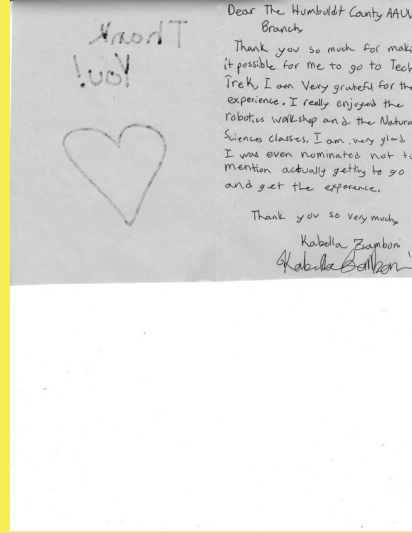 Thank
You!
Dear The Humboldt County AAUW
Branch
Thank you so much for maki
it possible for me to go to Tech
Trek, I am Very grateful for the
experience. I really enjoyed the
robotics workshop and the Natura
Sciences classes. I am very glad
I was even nominated not to
mention actually getting to go
and get the experence.
Thank you so very much,
Kabella Ziamboni